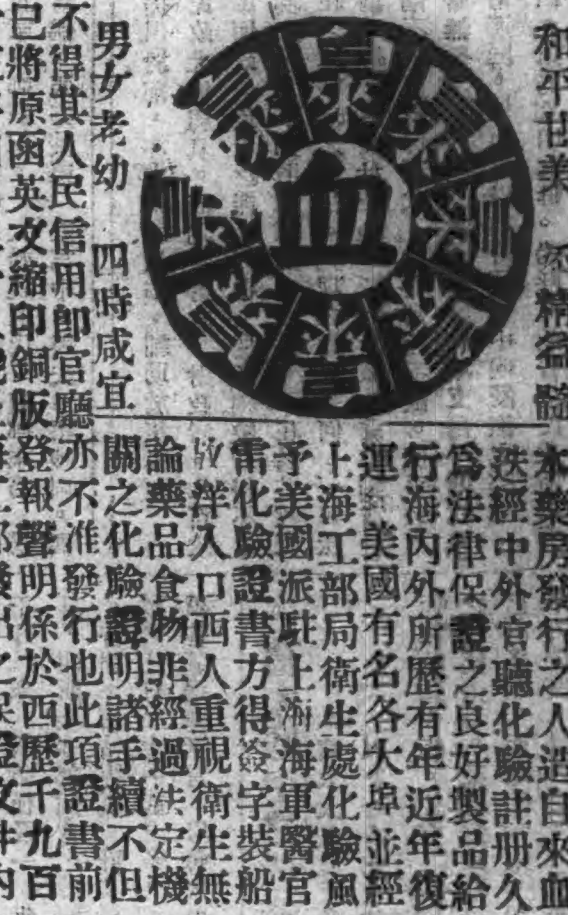 和平甘美 添精益髓
血
自來
自來
自來
自來
自來
自來
自來
自來
自來
男女老幼 四時咸宜
本藥房發行之人造自來血
迭經中外官聽化驗註册久
爲法律保證之良好製品給
行海內外所歷有年近年復
運 美國有名各大埠並經
上海工部局衛生處化驗
予美國派駐上海海軍醫官
雷化驗證書方得簽字裝船
放洋入口西人重視衛生無
論藥品食物非經過法定機
關之化驗證明諸手續不但
不得其人民信用卽官廳亦不准發行也此項證書前
已將原函英文縮印銅版登報聲明係於西歷千九百